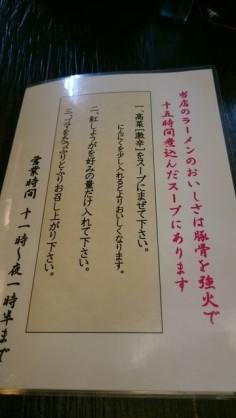 当店のラーメンのおいしさは豚骨を強火で
十五時間煮込んだスープにあります
一、高菜[激辛]をスープにまぜて下さい。
にんにくを少し入れるとよりおいしくなります。
二、紅しょうがを好みの量だけ入れて下さい。
三、ゴマをたっぷりとふりお召し上がり下さい。
営業時間 十一時～夜一時半まで